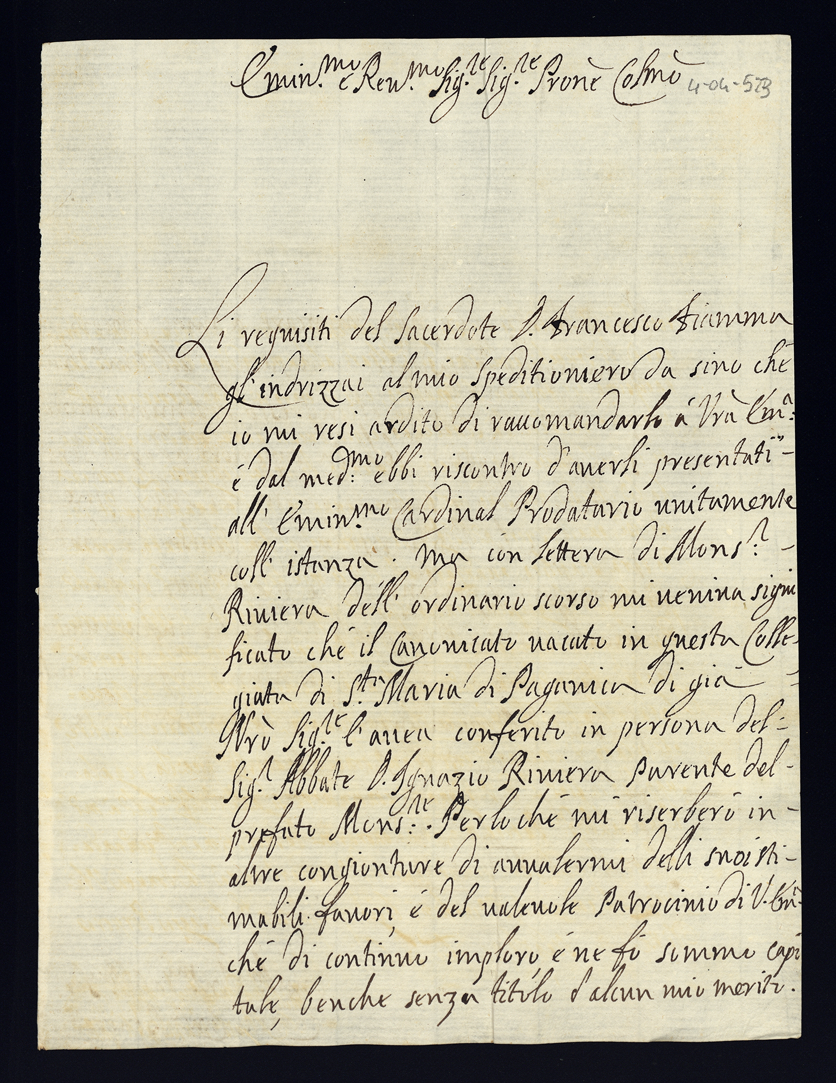 Emin.mo e Reu.mo Sig.re Sig.re Pronè Colmò
4-04-573
Li requisiti del Sacerdote D. Francesco Fiamma
gl'indrizzai al mio Speditioniero da sino ché
io mi resi ardito di raccomandarlo á Vrà Em.a:
é dal med.mo: ebbi riscontro d'averli presentati -
all' Emin.mo Cardinal Prodatario unitamente
coll' istanza. Ma con lettera di Mons.r -
Riviera dell' ordinario scorso mi veniva signi
ficato ché il Canonicato vacato in questa Colle-
giata di S.ta Maria di Paganica di giá - =
Nrò Sig.re l'avea conferito in persona del =
Sig.r Abbate D. Ignazio Riviera Parente del -
prefato Mons.re: . Perloché mi riserberó in -
altre congionture di avvalermi delli suoi sti -
mabili favori, é del valevole Patrocinio di V. Em.a
ché di continuo imploro é ne fó sommo capi
tale, benche senza titolo d'alcun mio merito.